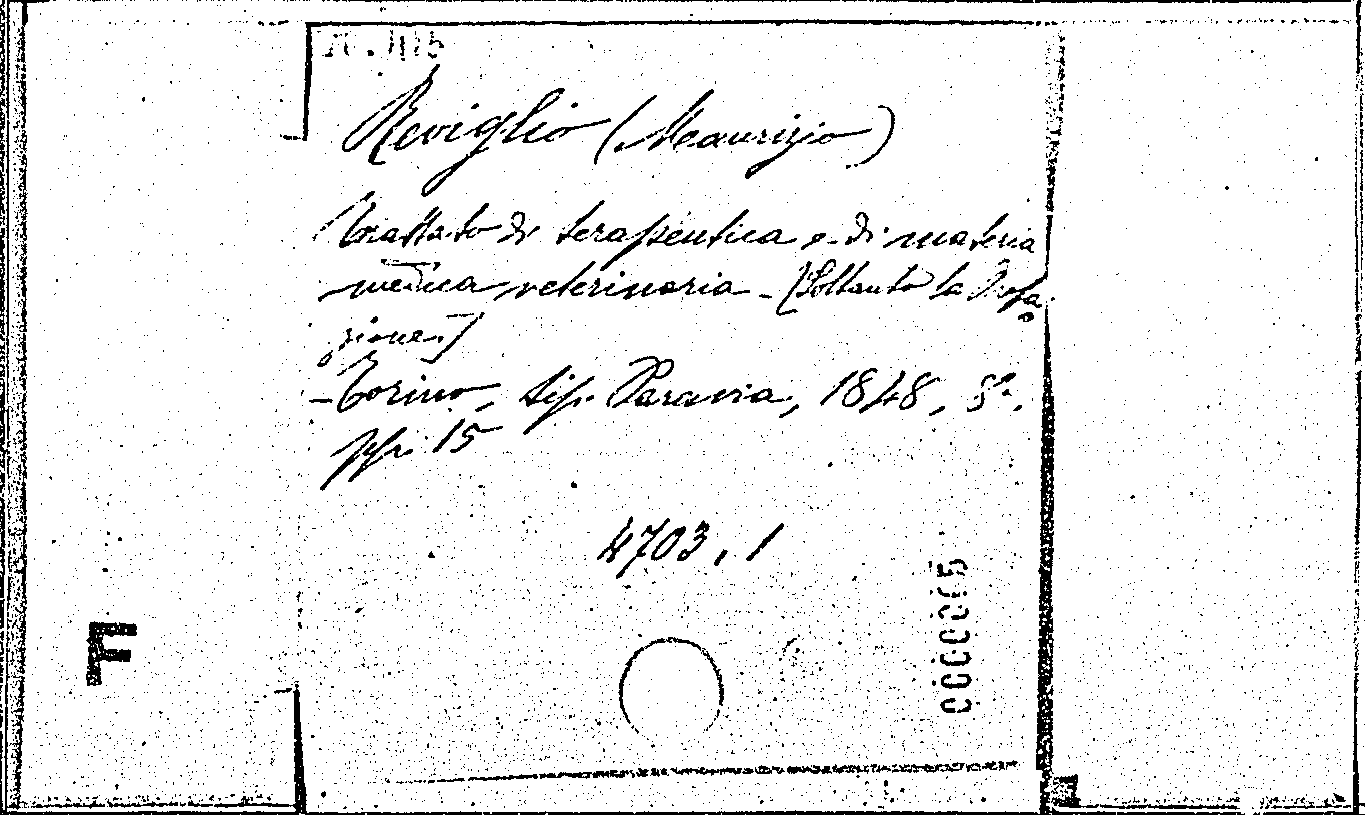 Reviglio (Maurizio)
Trattato di terapeutica e di materia
medica veterinaria - (Soltanto la Prefa-
zione)
- Torino, tip. Paravia, 1848, 8º.
pp. 15
4703, 1
0000005
F